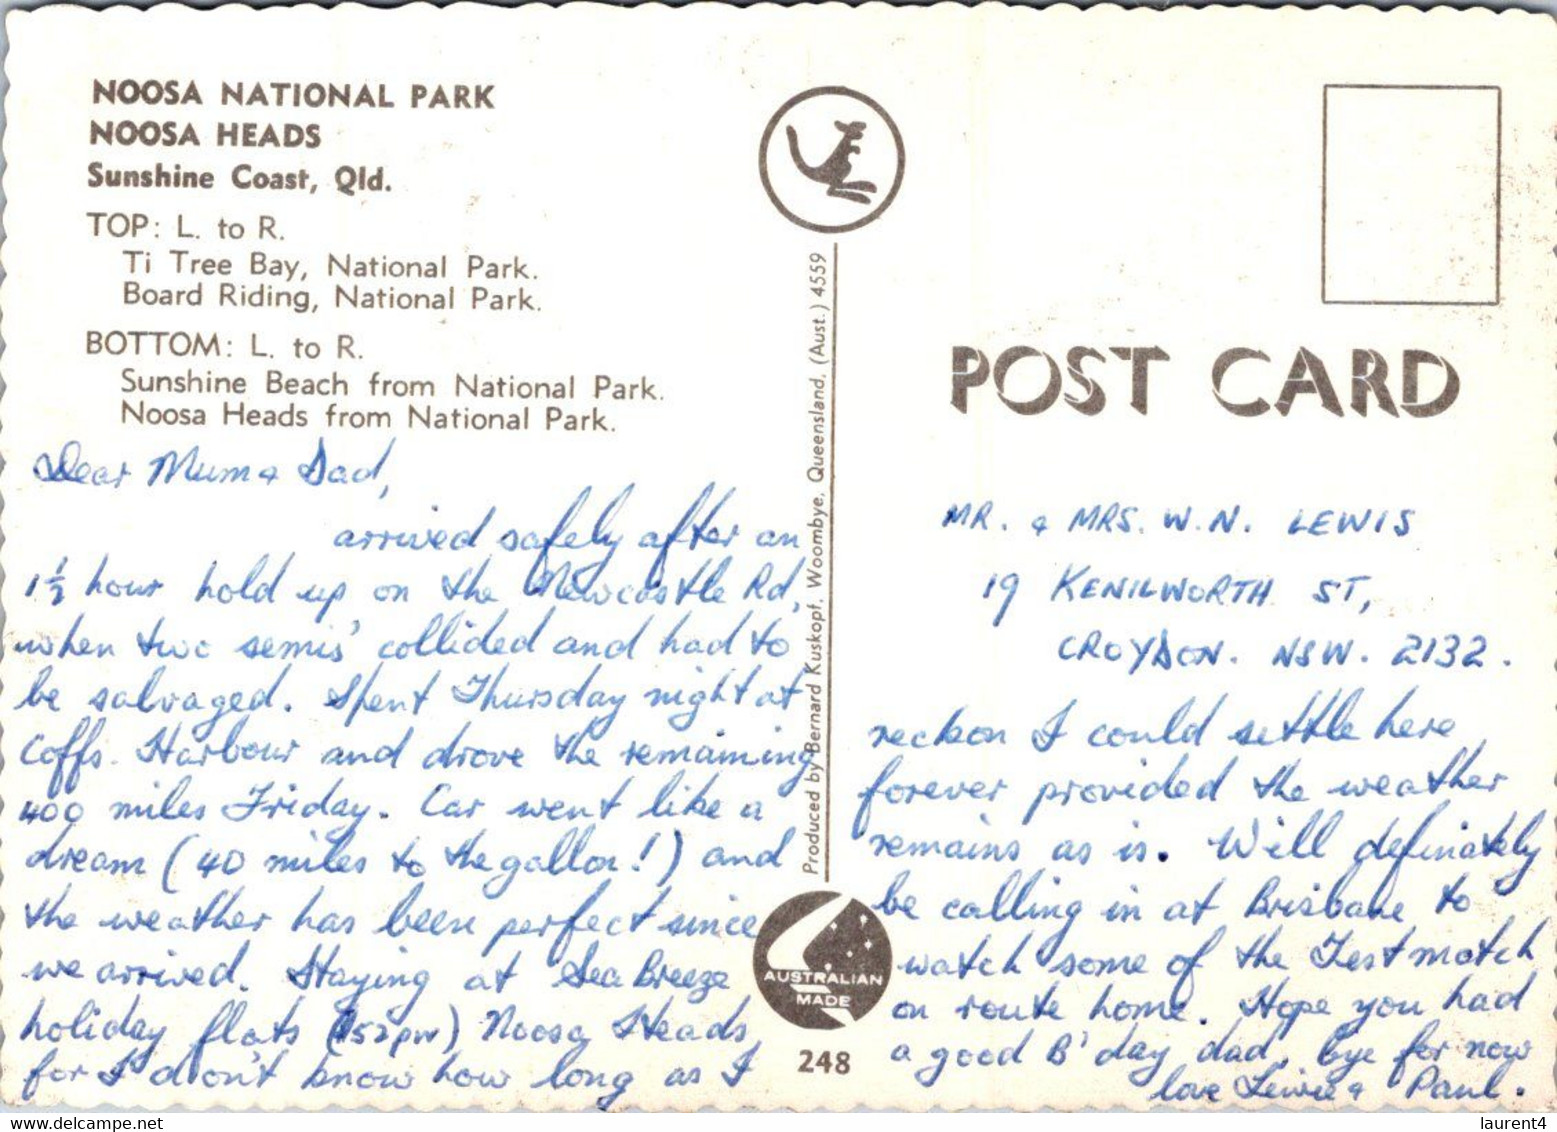 NOOSA NATIONAL PARK
NOOSA HEADS
Sunshine Coast, Qld.
TOP: L. to R.
Ti Tree Bay, National Park.
Board Riding, National Park.
BOTTOM: L. to R.
Sunshine Beach from National Park.
Noosa Heads from National Park.
Dear Mum & Dad,
arrived safely after an
1½ hour hold up on the Newcastle Rd,
when two semis' collided and had to
be salvaged. Spent Thursday night at
Coffs Harbour and drove the remaining
400 miles Friday. Car went like a
dream (40 miles to the gallon!) and
the weather has been perfect since
we arrived. Staying at Sea Breeze
holiday flats ($52pw) Noosa Heads,
for I don't know how long as I
Produced by Bernard Kuskopf, Woombye, Queensland, (Aust.) 4559
AUSTRALIAN
MADE
248
POST CARD
MR. & MRS. W.N. LEWIS
19 KENILWORTH ST,
CROYDON. NSW. 2132.
reckon I could settle here
forever provided the weather
remains as is. Will definately
be calling in at Brisbane to
watch some of the Test match
on route home. Hope you had
a good B'day dad, bye for now
love & Paul.
hippostcard.com
laurent4